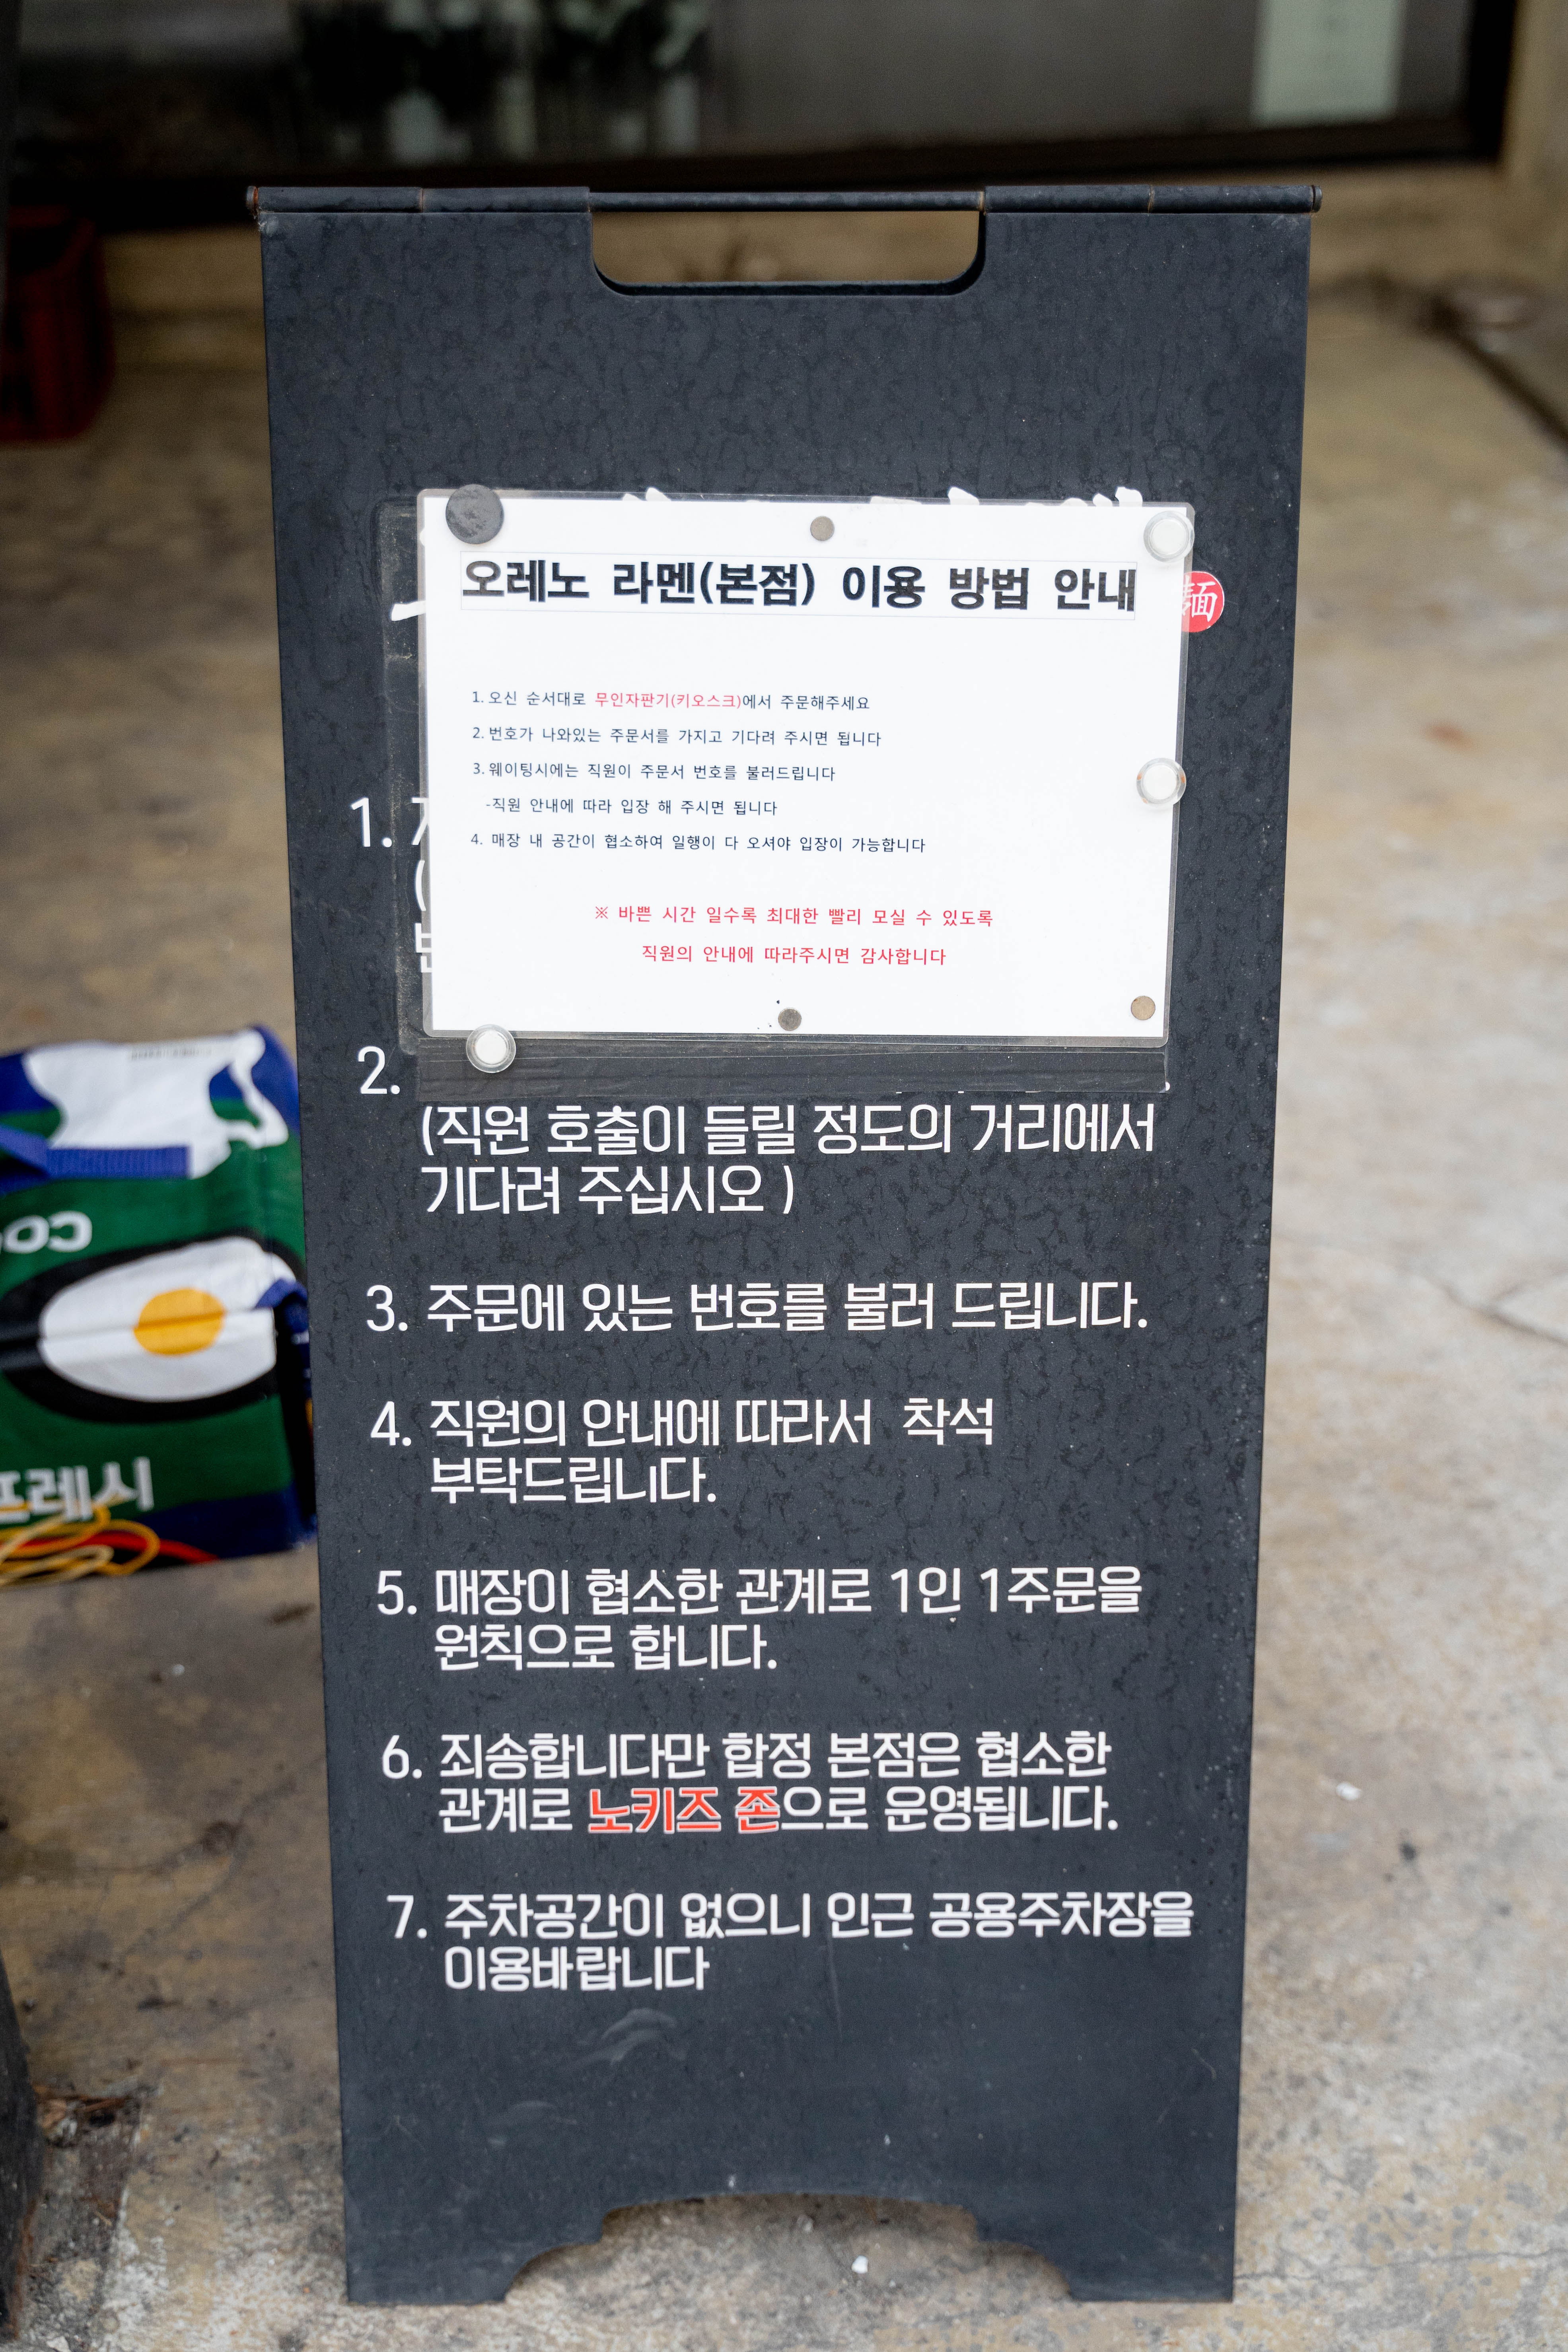 오레노 라멘(본점) 이용 방법 안내
麺
1. 오신 순서대로 무인자판기(키오스크)에서 주문해주세요
2. 번호가 나와있는 주문서를 가지고 기다려 주시면 됩니다
3. 웨이팅시에는 직원이 주문서 번호를 불러드립니다
-직원 안내에 따라 입장 해 주시면 됩니다
4. 매장 내 공간이 협소하여 일행이 다 오셔야 입장이 가능합니다
※ 바쁜 시간 일수록 최대한 빨리 모실 수 있도록
직원의 안내에 따라주시면 감사합니다
1.
2.
(직원 호출이 들릴 정도의 거리에서
기다려 주십시오 )
3. 주문에 있는 번호를 불러 드립니다.
4. 직원의 안내에 따라서 착석
부탁드립니다.
5. 매장이 협소한 관계로 1인 1주문을
원칙으로 합니다.
6. 죄송합니다만 합정 본점은 협소한
관계로 노키즈 존으로 운영됩니다.
7. 주차공간이 없으니 인근 공용주차장을
이용바랍니다
프레시